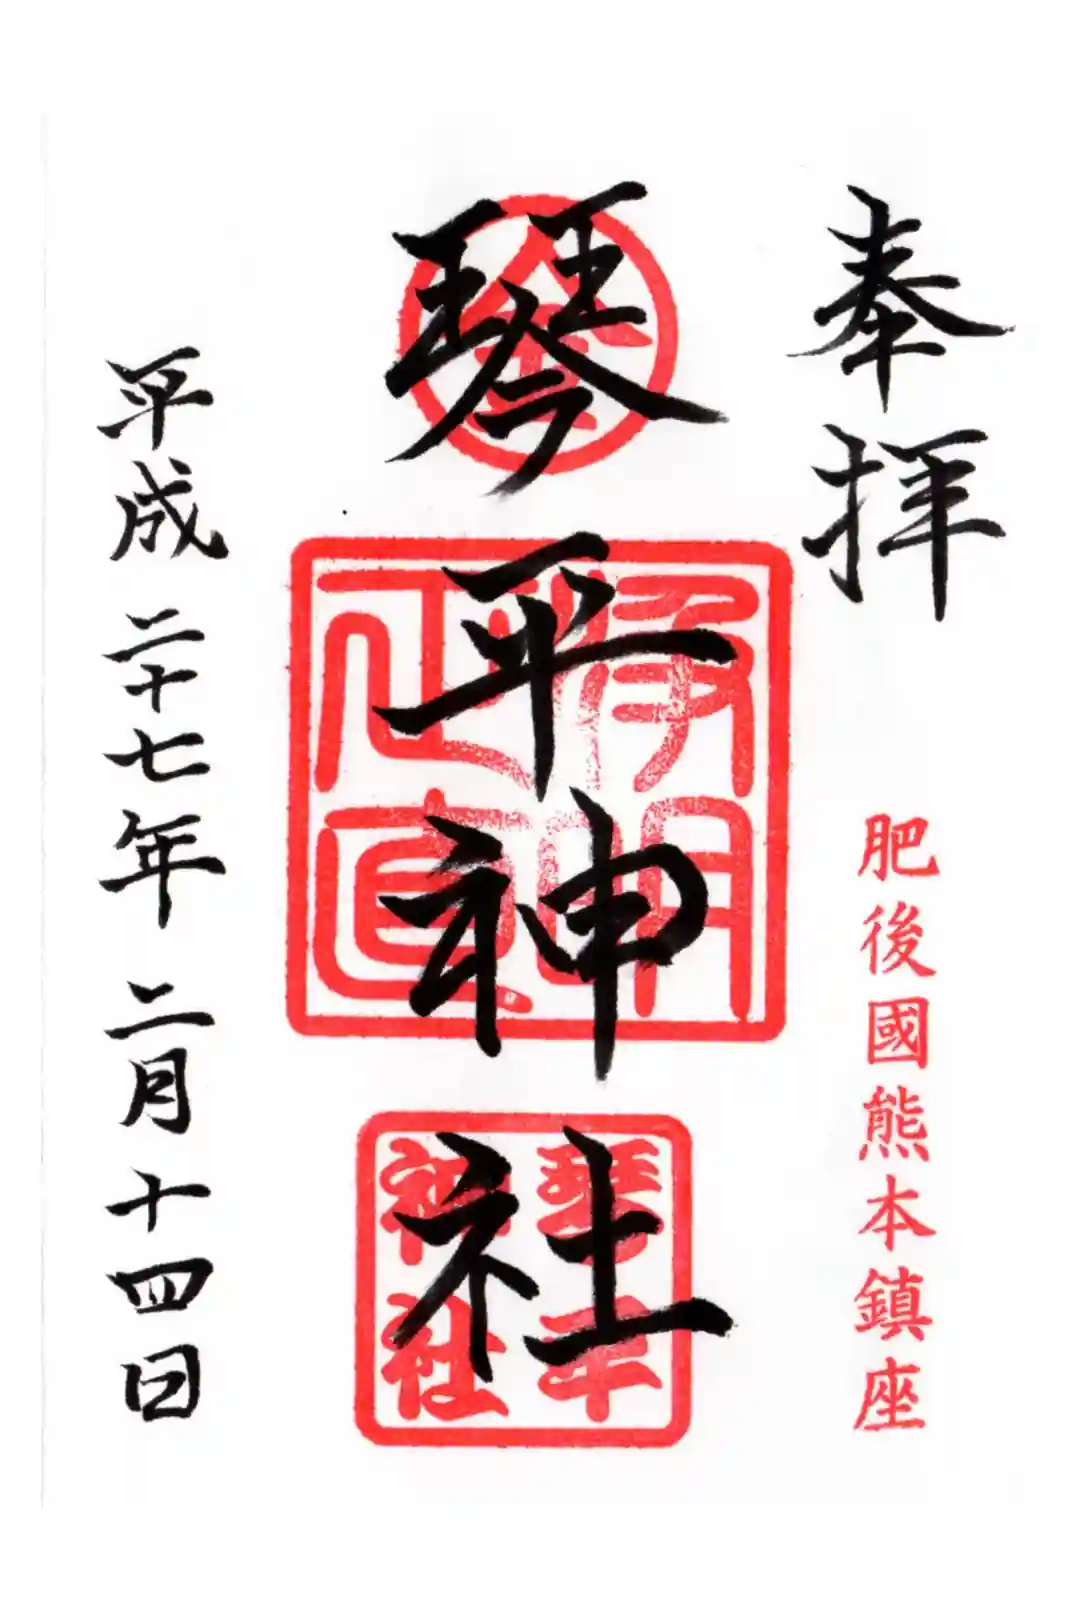 奉拝
肥後國熊本鎮座
琴平神社
金
浄明正直
琴平神社
平成二十七年二月十四日